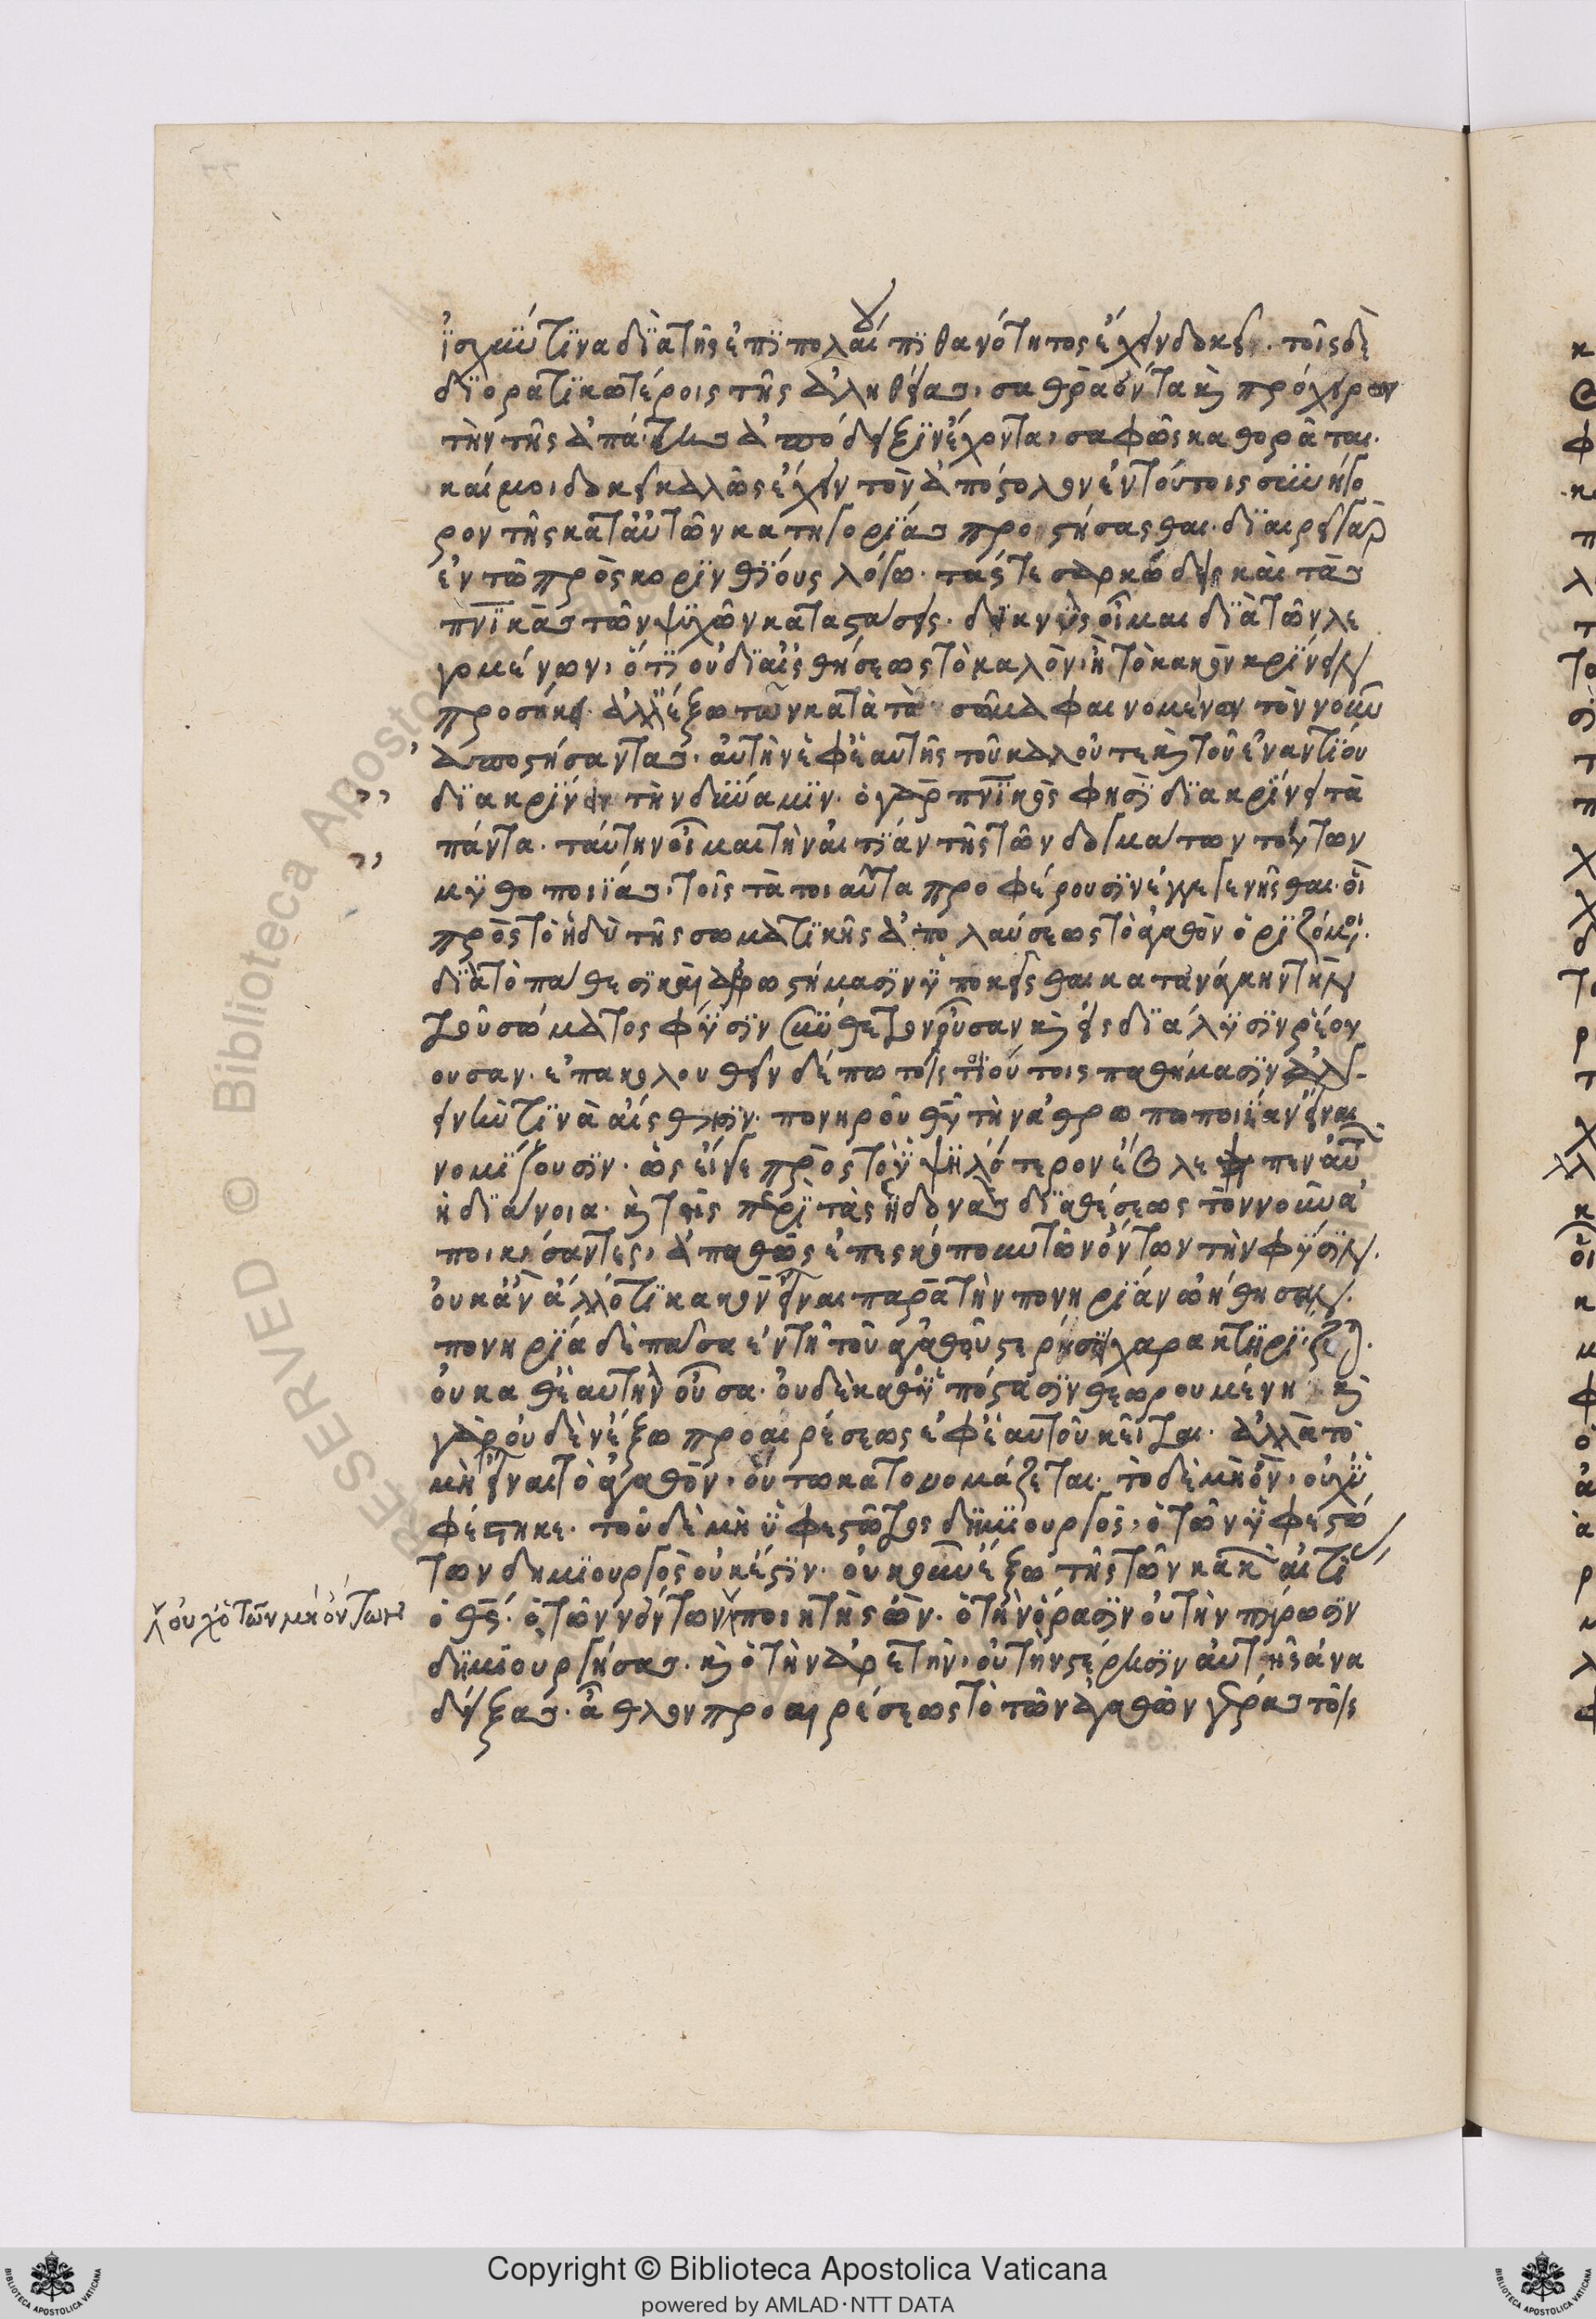 ἰσχύν τινα διὰ τῆς ἐπιπολαίου πιθανότητος ἔχειν δοκεῖ. τοῖς δὲ
διορατικωτέροις τῆς ἀληθείας, σαθρὰ ὄντα κ πρόχειρον
τὴν τῆς ἀπάτης ἀπόδειξιν ἔχοντα, σαφῶς καθορᾶται.
καί μοι δοκεῖ καλῶς ἔχειν τὸν ἀπόστολον ἐν τούτοις συνήγο
ρον τῆς κατ αὐτῶν κατηγορίας προστήσασθαι. διαιρεῖ γὰρ
ἐν τῶ πρὸς κορινθίους λόγω. τάς τε σαρκώδεις καὶ τὰς
πνικὰς τῶν ψυχῶν καταστάσεις. δεικνὺς οἶμαι διὰ τῶν λε
γομένων, ὅτι οὐ δι αἰσθήσεως τὸ καλὸν, ἢ τὸ κακὸν κρίνειν
προσήκει. ἀλλ ἔξω τῶν κατὰ τὸ σῶμα φαινομένων τὸν νοῦν
ἀποστήσαντας. αὐτὴν ἐφ ἑαυτῆς τοῦ καλοῦ τε κ τοῦ ἐναντίου
διακρίνειν τὴν δύναμιν. ὁ γὰρ πνικὸς φησὶ διακρίνει τὰ
πάντα. ταύτην οἶμαι τὴν αἰτίαν τῆς τῶν δογμάτων τούτων
μυθοποιίας, τοῖς τὰ τοιαῦτα προφέρουσιν ἐγγεγενῆσθαι. ὅτι
πρὸς τὸ ἡδὺ τῆς σωματικῆς ἀπολαύσεως τὸ ἀγαθὸν ὁριζόμοι.
διὰ τὸ πάθεσι καὶ ἀρρωστήμασιν ὑποκεῖσθαι κατ ἀνάγκην τὴν
τοῦ σώματος φύσιν σύνθετον οὖσαν κ εἰς διάλυσιν ῥέου
ουσαν. ἐπακολουθεῖν δέ πω τοῖς τοιούτοις παθήμασιν ἀλγ
εινήν τινα αἴσθησιν. πονηροῦ θῦ τὴν ἀθρωποποιίαν εἶναι
νομίζουσιν. ὡς εἴγε πρὸς τὸ ὑψηλότερον ἔβλεπεν αὐτ
ἡ διάνοια. κ τῆς περὶ τὰς ἡδονὰς διαθέσεως τὸν νοῦν ἀ
ποικήσαντες, ἀπαθῶς ἐπεσκόπουν τῶν ὄντων τὴν φύσιν.
οὐκ ἂν ἄλλό τι κακὸν εἶναι παρὰ τὴν πονηρίαν ὠήθησαν.
πονηρία δὲ πᾶσα ἐν τῆ τοῦ ἀγαθοῦ στερήσει χαρακτηρίζετ.
οὐ καθ ἑαυτὴν οὖσα. οὐδὲ καθ ὑπόστασιν θεωρουμένη. κ
γὰρ οὐδὲν ἔξω προαιρέσεως ἐφ ἑαυτοῦ κεῖται. ἀλλὰ τὸ
μὴ εἶναι τὸ ἀγαθὸν, οὕτω κατονομάζεται. τὸ δὲ μὴ ὂν, οὐχ ὑ
φέστηκε. τοῦ δὲ μὴ ὑφεστῶτος δημιουργὸς, ὁ τῶν ὑφεστώ
των δημιουργὸς οὐκ ἔστιν. οὐκοῦν ἔξω τῆς τῶν κακ αἰτί
ὁ θς. ὁ τῶν ὄντων ποιητὴς ὤν. ὁ τὴν ὅρασιν οὐ τὴν πήρωσιν
οὐχ ὁ τῶν μὴ ὄντων
δημιουργήσας. κ ὁ τὴν ἀρετὴν, οὐ τὴν στέρησιν αὐτῆς ἀνα
δείξας. ὁ ἆθλον προαιρέσεως τὸ τῶν ἀγαθῶν γέρας τοῖς
RESERVED © Biblioteca Apostolica
Copyright © Biblioteca Apostolica Vaticana
powered by AMLAD·NTT DATA